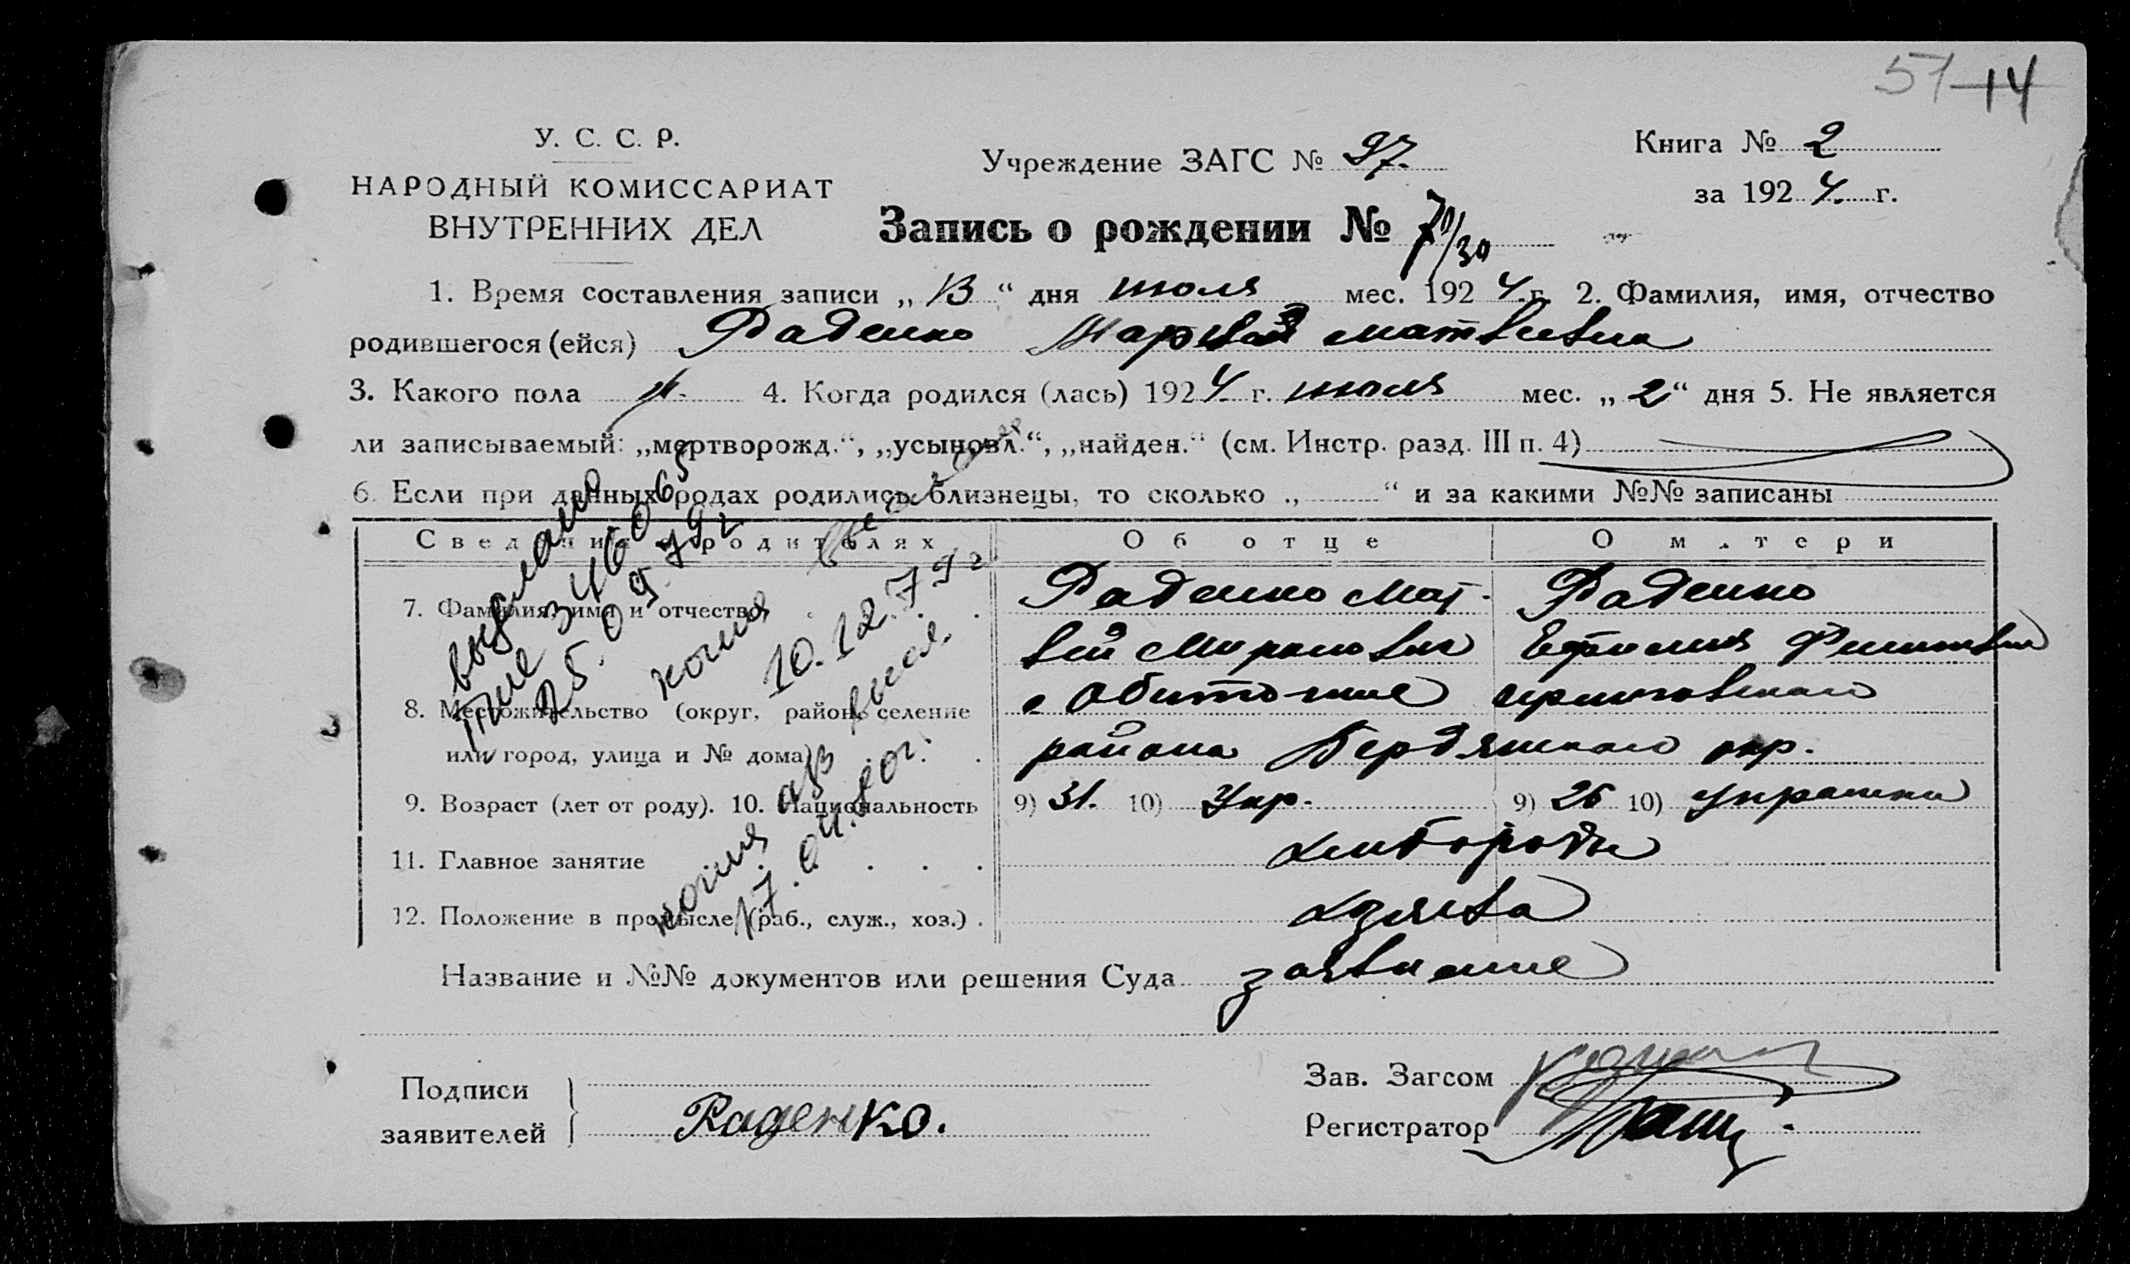 57 14
У. С. С. Р.
НАРОДНЫЙ КОМИССАРИАТ
ВНУТРЕННИХ ДЕЛ
Учреждение ЗАГС № 97.
Книга № 2
за 1924. г.
Запись о рождении № 70/30
1. Время составления записи „13“ дня июля мес. 1924 г. 2. Фамилия, имя, отчество
родившегося (ейся) Раденко Матвеевна
3. Какого пола 4. Когда родился (лась) 1924. г. июля мес. „2“ дня 5. Не является
ли записываемый: „мертворожд.“, „усыновл.“, „найден.“ (см. Инстр. разд. III п. 4)
6. Если при данных родах родились близнецы, то сколько „ “ и за какими №№ записаны
Сведения о родителях Об отце О матери
7. Фамилия, имя и отчество Раденко Мат- Раденко
вей Миронович Ефимия
8. Местожительство (округ, район, селение с Обиточное
или город, улица и № дома) района Бердянского окр.
9. Возраст (лет от роду). 10. Национальность 9) 31. 10) Укр. 9) 26 10) украинка
11. Главное занятие хлебороды
12. Положение в промысле (раб., служ., хоз.) хозяева
выдано
346065
25.09.79г
копия
10.12.79г
копия
17.04.80г.
Название и №№ документов или решения Суда заявление
Подписи
заявителей Раденко.
Зав. Загсом
Регистратор